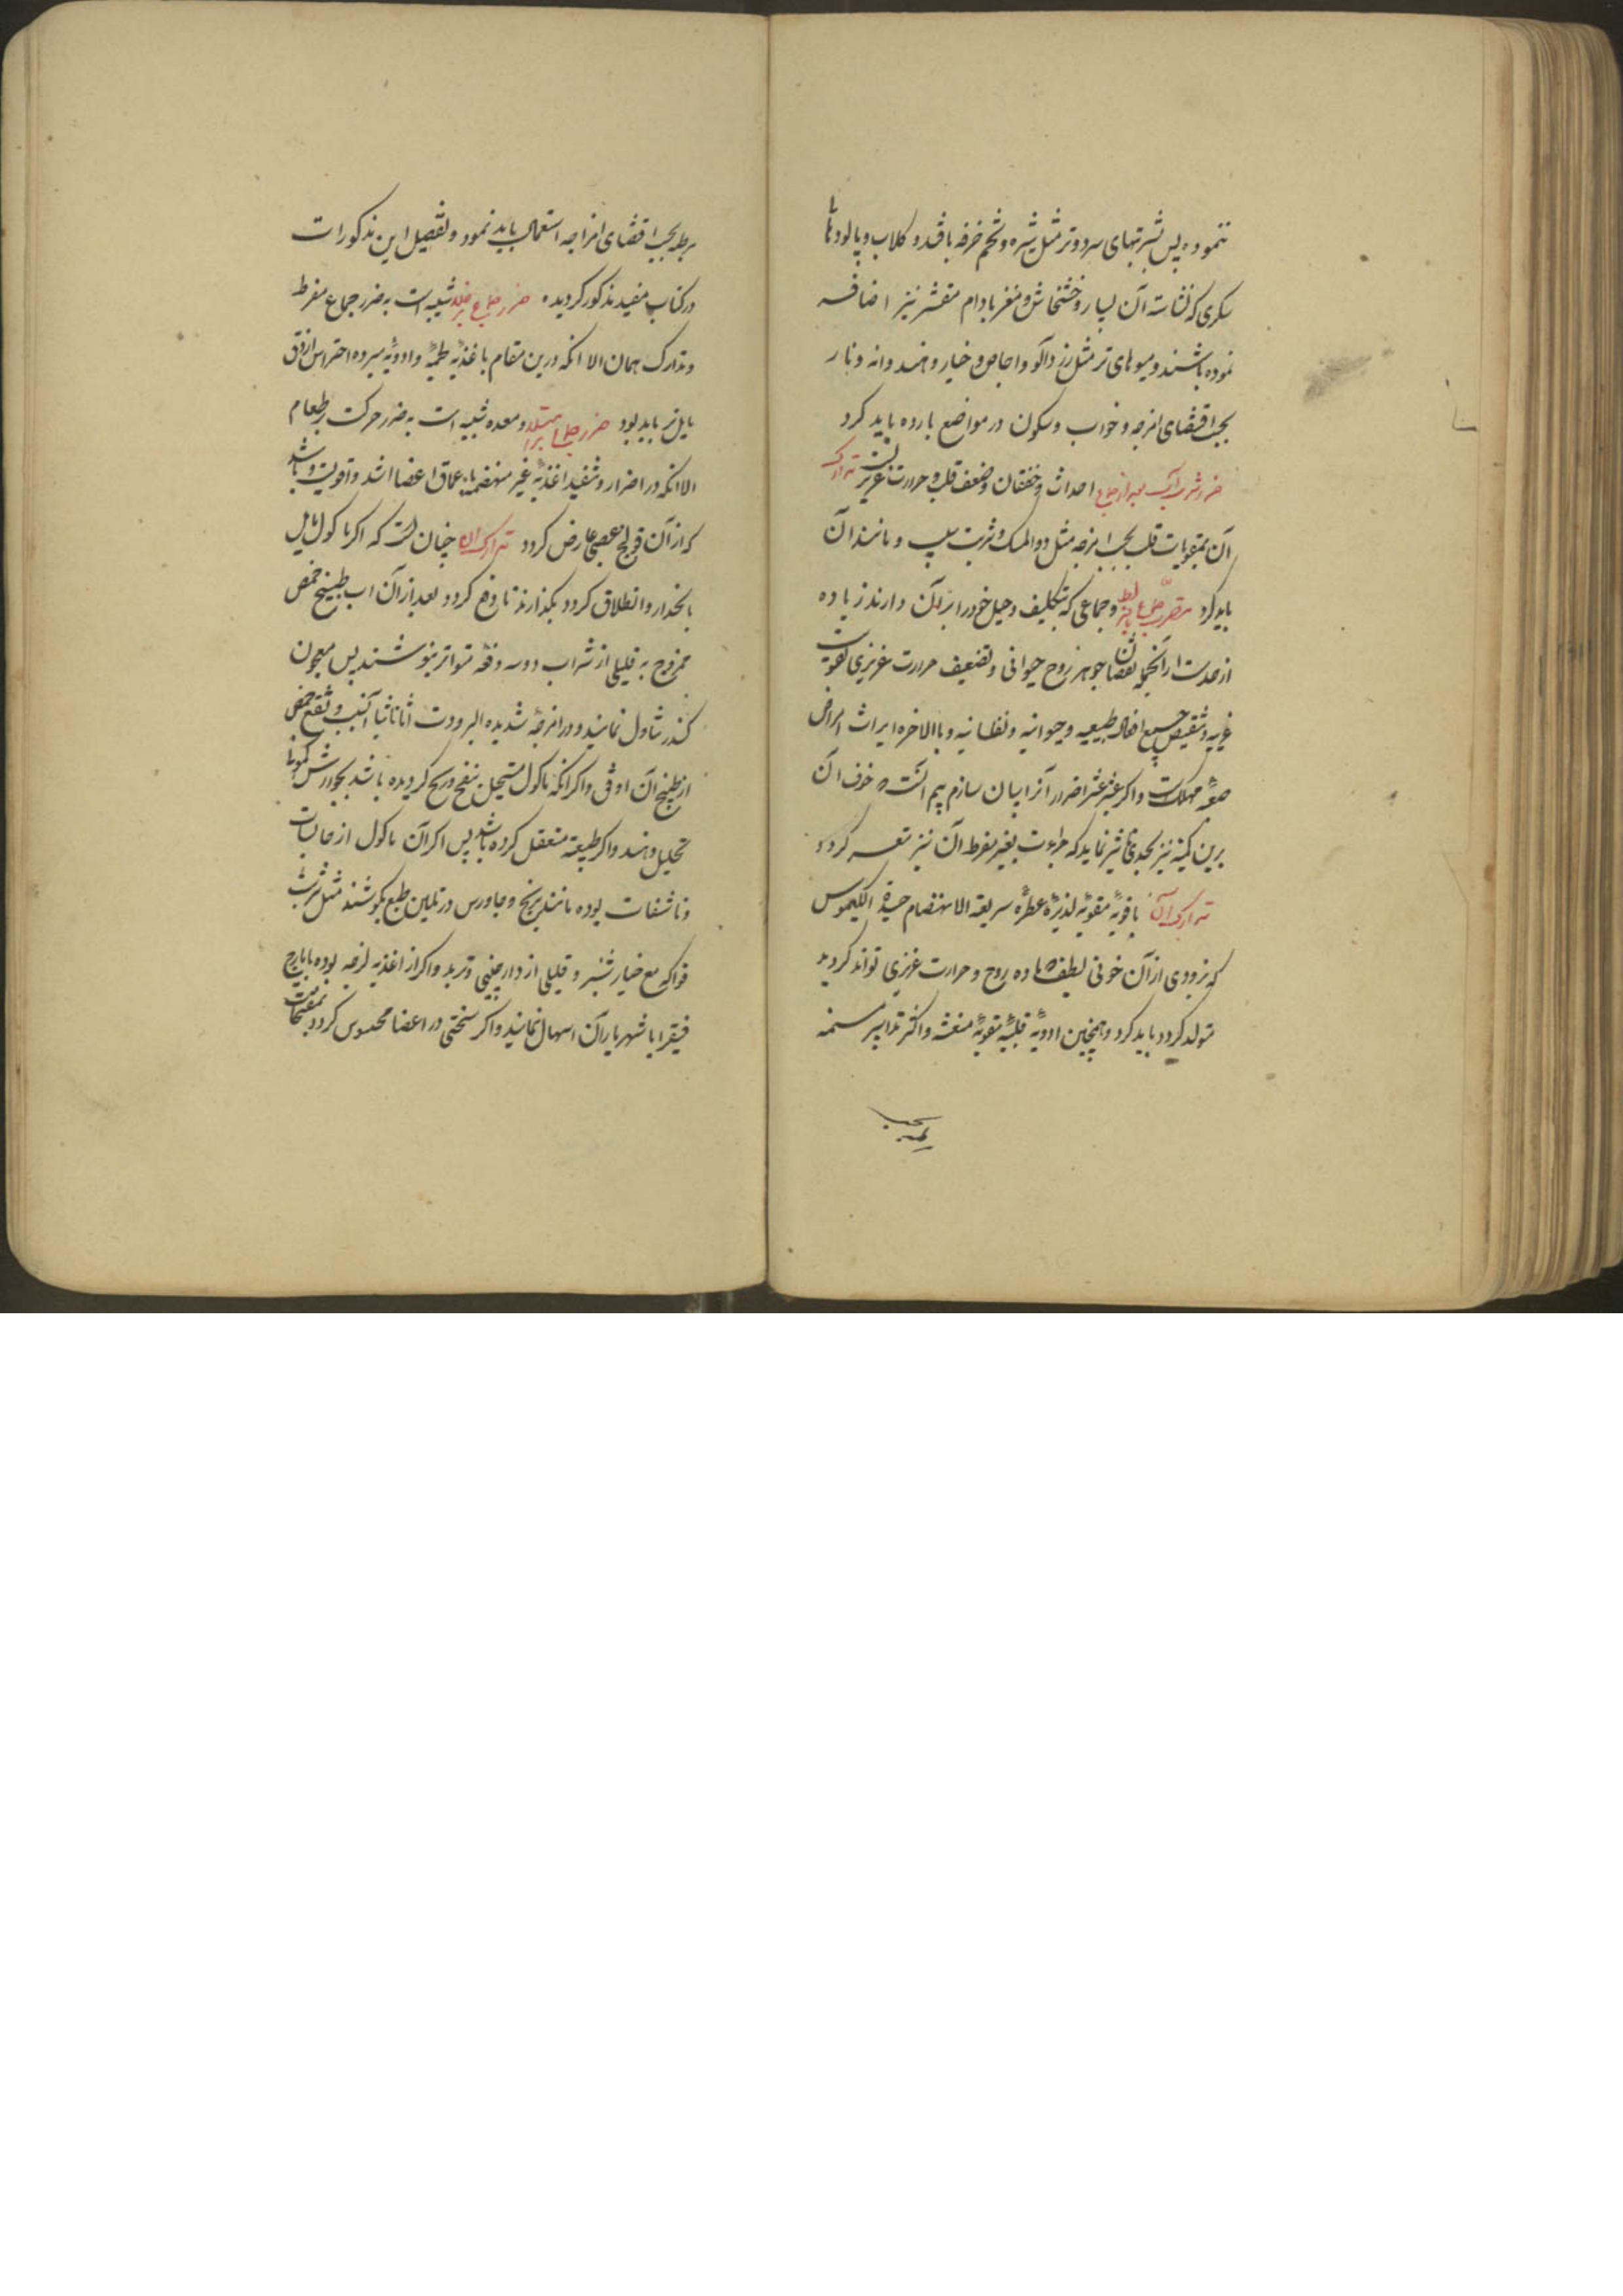 ننموده پس شربتهای سرد و تر مثل شیره و تخم خرفه با قند و کلاب و پالودها
سکری که نشاسته آن بسیار و خشخاش و مغز بادام مقشر نیز اضافه
نموده باشند و میوهای تر مثل زردآلو و اجاص و خیار و هندوانه و نار
بحسب اقتضای امزجه و خواب و سکون در مواضع بارده باید کرد
ضرر شرب آب بعد از جماع احداث و خفقان و ضعف قلب و حرارت غریزیست تدارک
آن بمقویات قلب بحسب امزجه مثل دواء المسک و شربت سیب و مانند آن
باید کرد ضرر جماع و جماعی که بتکلیف و حیل خود را بر آن دارند زیاده
از حدست از آنجمله نقصان جوهر روح حیوانی و تضعیف حرارت غریزی تقویت
غریبه و تنقیص جمیع افعال طبیعیه و حیوانیه و نفسانیه و بالاخره ایراث امراض
صعبه مهلکه است و اگر عشر عشر اضرار آنرا بیان سازم بیم آنست که خوف آن
برین کمینه نیز بحدی تاثیر نماید که جراءت بغیر مفرط آن نیز متعسر کردد
تدارک آن باغذیه مقویه لذیذه عطره سریعة الانهضام جیدة الکیموس
که بزودی از آن خونی لطیف که ماده روح و حرارت غریزی تواند کردید
متولد کردد باید کرد و همچنین ادویه قلبیه مقویه منعشه و اکثر تدابیر مسمنه
بحسب
مرطبه بحسب اقتضای امزاجه استعمال باید نمود و تفصیل این مذکورات
در کتاب مفید مذکور کردیده ضرر جماع بر خلا شبیه است به ضرر جماع مفرط
و تدارک همان الا انکه درین مقام باغذیه و ادویه مبرده احتراس از دق
مایل تر باید بود ضرر جماع بر امتلا و معده شبیه است به ضرر حرکت بر طعام
الا انکه در اضرار و تنفید اغذیه غیر منهضمه باعماق اعضا اشد و اقویست و باشد
که از آن قولنج عصبی عارض کردد تدارک آن چنان است که اکر ماکول مایل
بانحدار و انطلاق کردد بکذارند تا دفع کردد و بعد از آن آب طبیخ حمص
ممزوج به قلیلی از شراب دو سه دفعه متواتر بنوشند پس معجون
کندر تناول نمایند و در امزجه شدیده البرودت اثاناثیا انسب و نقع حمص
از طبیخ آن اوفق و اکر انکه ماکول مستحیل بنفخ و ریح کردیده باشد بجوارش کمونا
تحلیل دهند و اکر طبیعة متعقل کرده باشد پس اکر آن ماکول از حابسات
و ناشفات بوده مانند برنج و جاورس در تلیین طبع بکوشند مثل شربت
فواکه مع خیار شنبر و قلیلی از دارچینی و تربد و اکر از اغذیه لزجه بوده بایارج
فیقرا یا شهریاران اسهال نمایند و اکر سختی در اعضا محسوس کردد بمفتحات